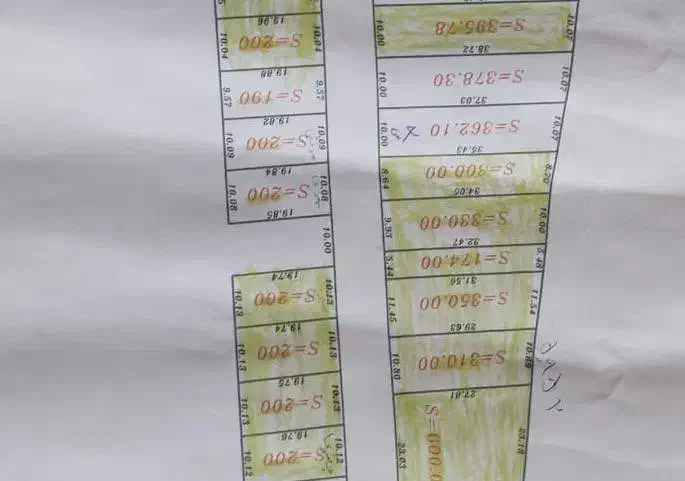 23.18 23.03
27.81
10.89 S=310.00 10.80
29.63
11.54 S=350.00 11.45
31.50
5.48 S=174.00 5.44
32.47
10.00 S=330.00 9.93
34.05
8.70 S=300.00 8.64
35.43
10.07 S=362.10 10.00
37.03
10.07 S=378.30 10.00
38.72
10.07 S=395.78 10.00
10.12 S=200 10.12
19.76
10.13 S=200 10.13
19.75
10.13 S=200 10.13
19.74
10.13 S=200 10.13
19.74
10.00
19.85
10.08 S=200 10.08
19.84
10.09 S=200 10.09
19.82
9.57 S=190 9.57
19.88
10.04 S=200 10.04
19.96